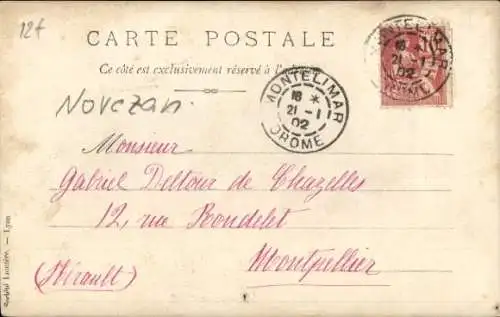 12f
CARTE POSTALE
Ce côté est exclusivement réservé à l'adresse
MONTELIMAR
18 *
21 -1
02
DROME
MONTELIMAR
18
21 -1
02
DROME
Novczan
Monsieur
Gabriel Deltour de Chazelles
12, rue Rondelet
Montpellier
(Hérault)
Société Lumière. — Lyon